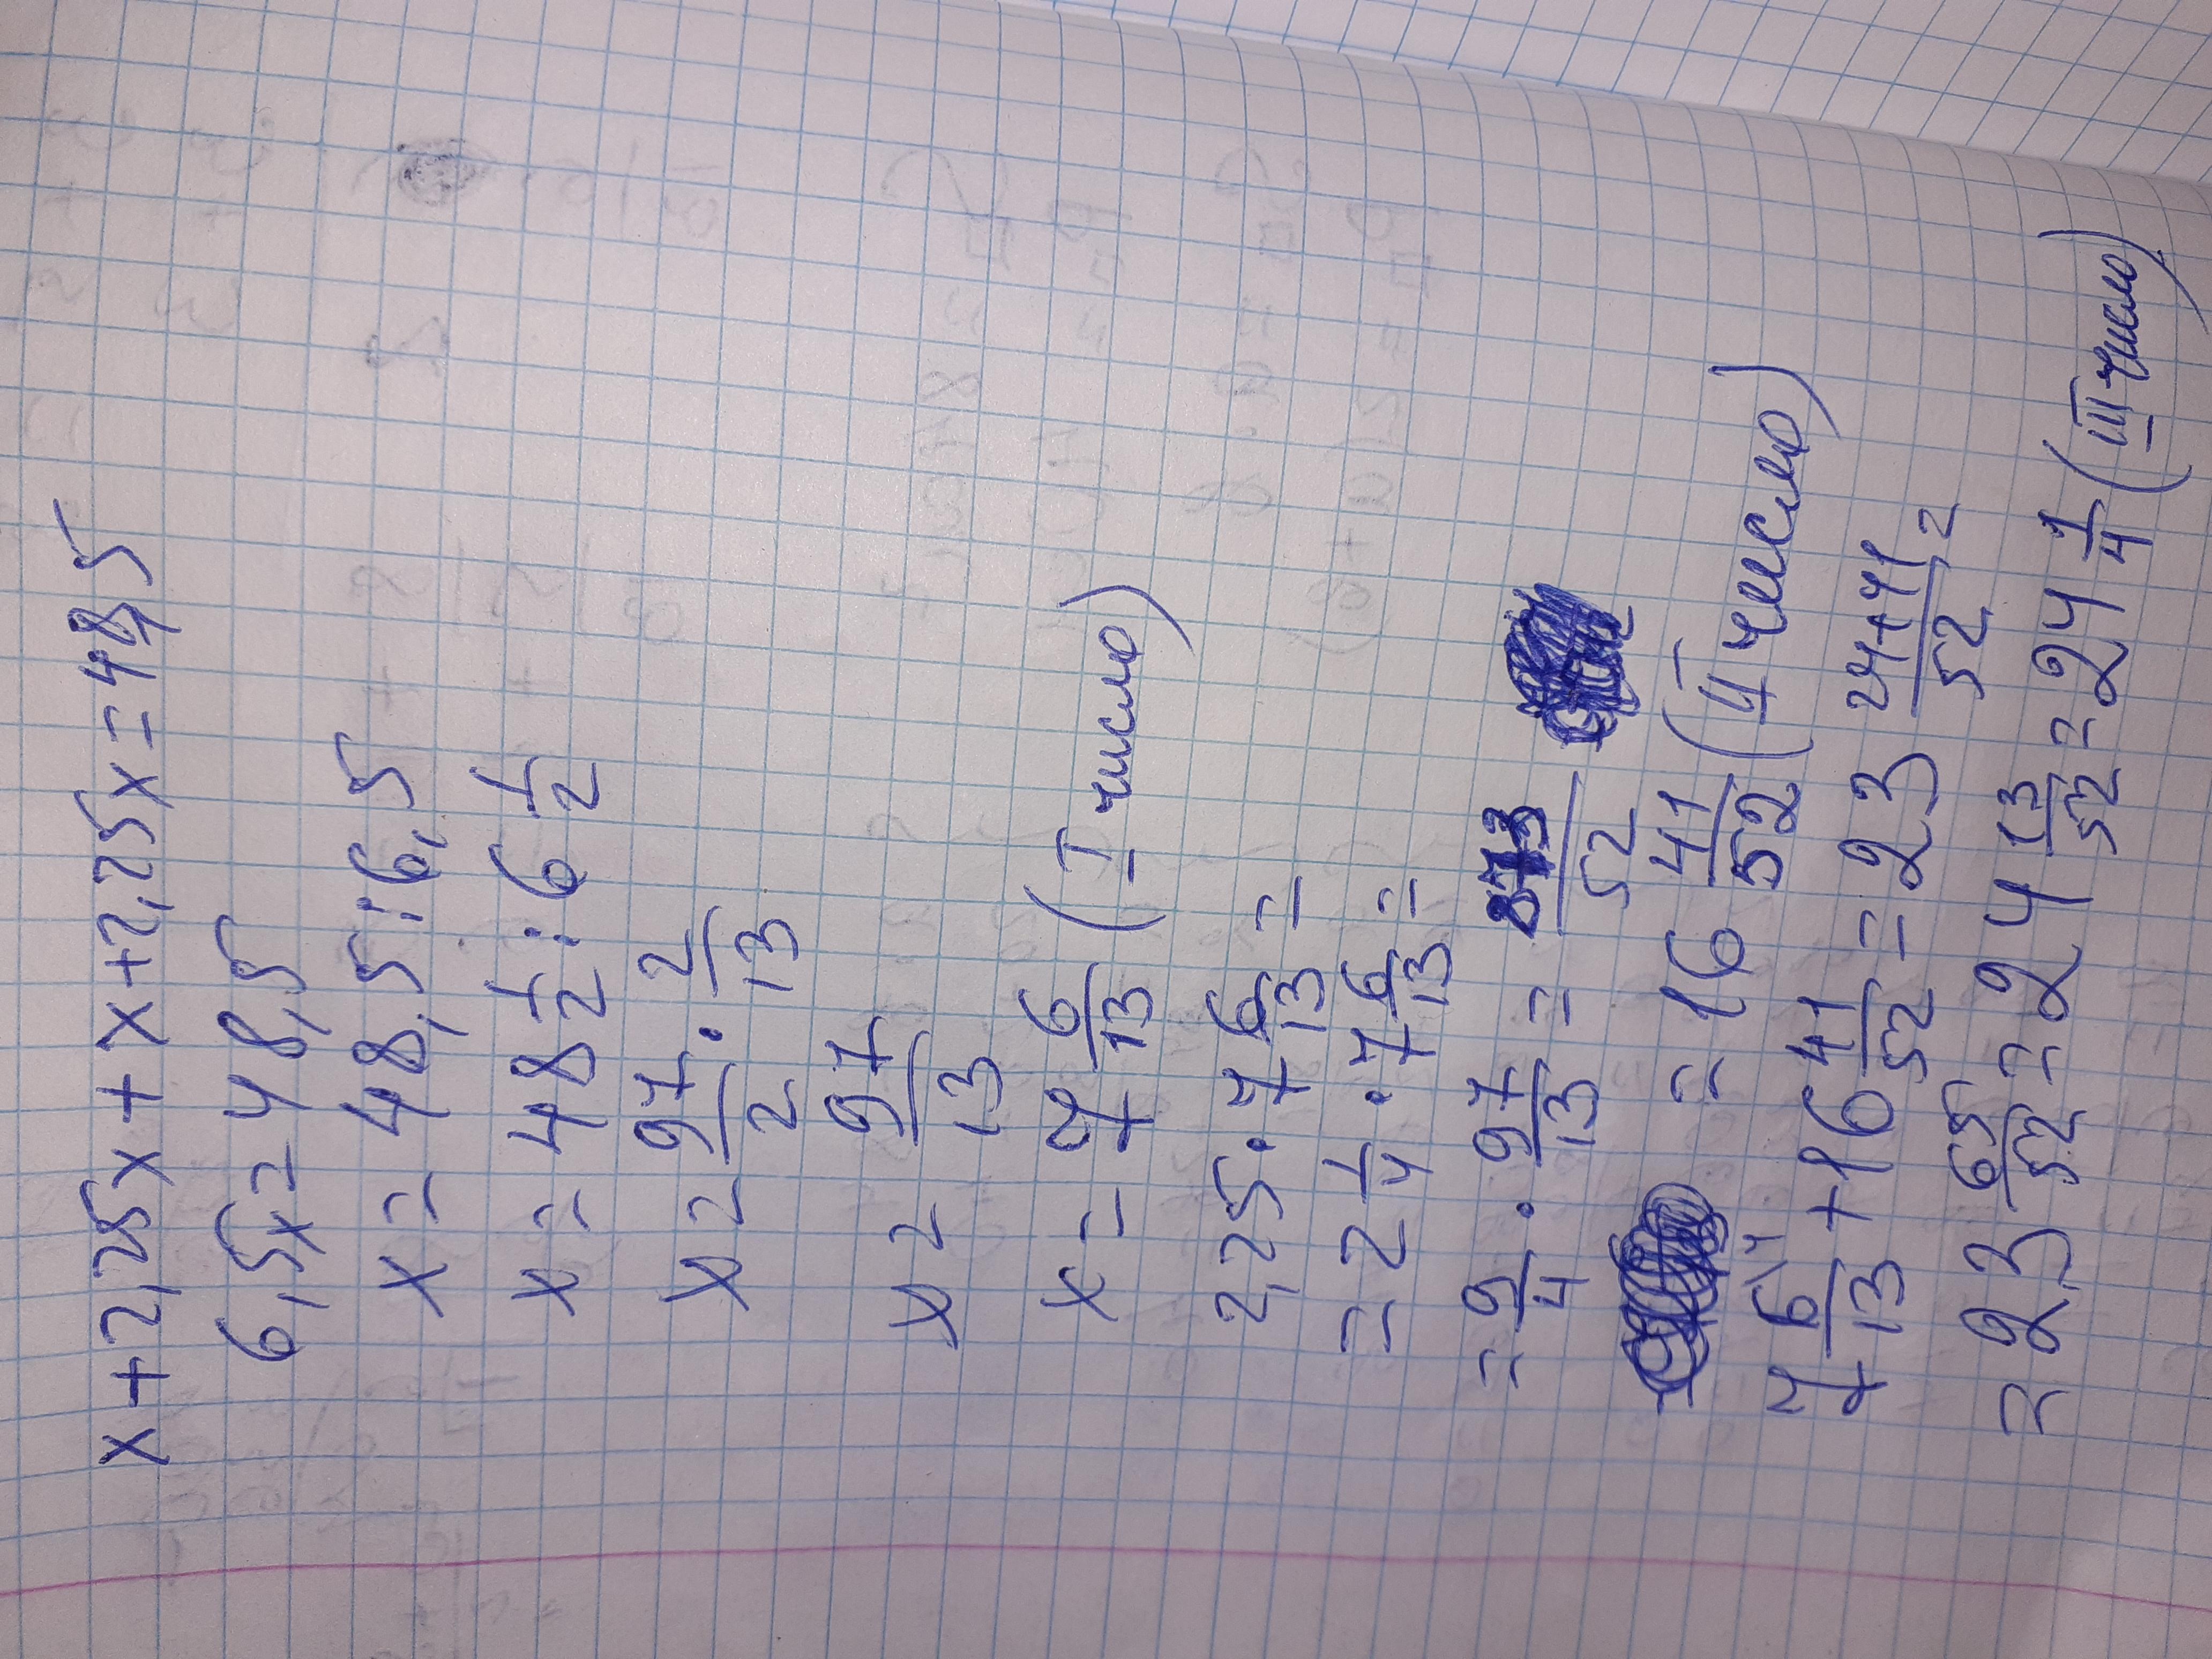 x + 2,25x + x + 2,25x = 48,5
6,5x = 48,5
x = 48,5 : 6,5
x = 48 1/2 : 6 1/2
x = 97/2 · 2/13
x = 97/13
x = 7 6/13 (I число)
2,25 · 7 6/13 =
= 2 1/4 · 7 6/13 =
= 9/4 · 97/13 = 873/52
= 16 41/52 (II число)
7 6/13 + 16 41/52 = 23 24+41/52 =
= 23 65/52 = 24 13/52 = 24 1/4 (III число)